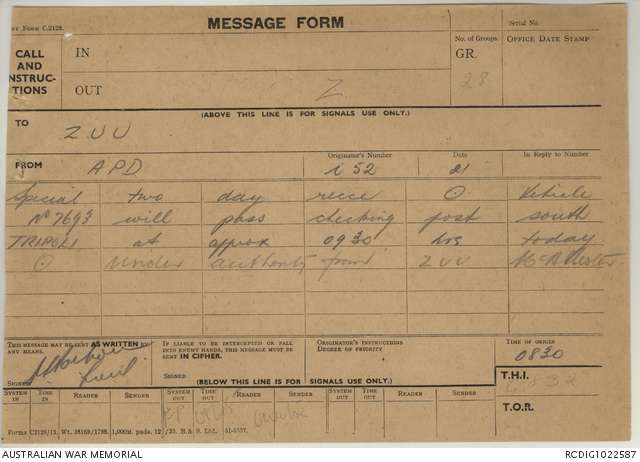 MY FORM C.2128.
MESSAGE FORM
Serial No.
CALL AND INSTRUCTIONS
IN
OUT
Z
No. of Groups.
GR.
28
OFFICE DATE STAMP
(ABOVE THIS LINE IS FOR SIGNALS USE ONLY.)
TO
ZUU
FROM
APD
Originator's Number
i 52
Date
21
In Reply to Number
Special two day recce O Vehicle
No 7693 will pass checking post south
TRIPOLI at approx 0930 hrs today
O Under authority from ZUU McAllester
THIS MESSAGE MAY BE SENT AS WRITTEN BY ANY MEANS.
SIGNED
IF LIABLE TO BE INTERCEPTED OR FALL INTO ENEMY HANDS, THIS MESSAGE MUST BE SENT IN CIPHER.
SIGNED
ORIGINATOR'S INSTRUCTIONS
DEGREE OF PRIORITY
TIME OF ORIGIN
0830
(BELOW THIS LINE IS FOR SIGNALS USE ONLY.)
T.H.I.
T.O.R.
SYSTEM IN TIME IN READER SENDER SYSTEM OUT TIME OUT READER SENDER SYSTEM OUT TIME OUT READER SENDER
Forms C2128/13. Wt. 38169/1788. 1,000m. pads. 12/39. B & S. Ltd. 51-6537.
AUSTRALIAN WAR MEMORIAL
RCDIG1022587